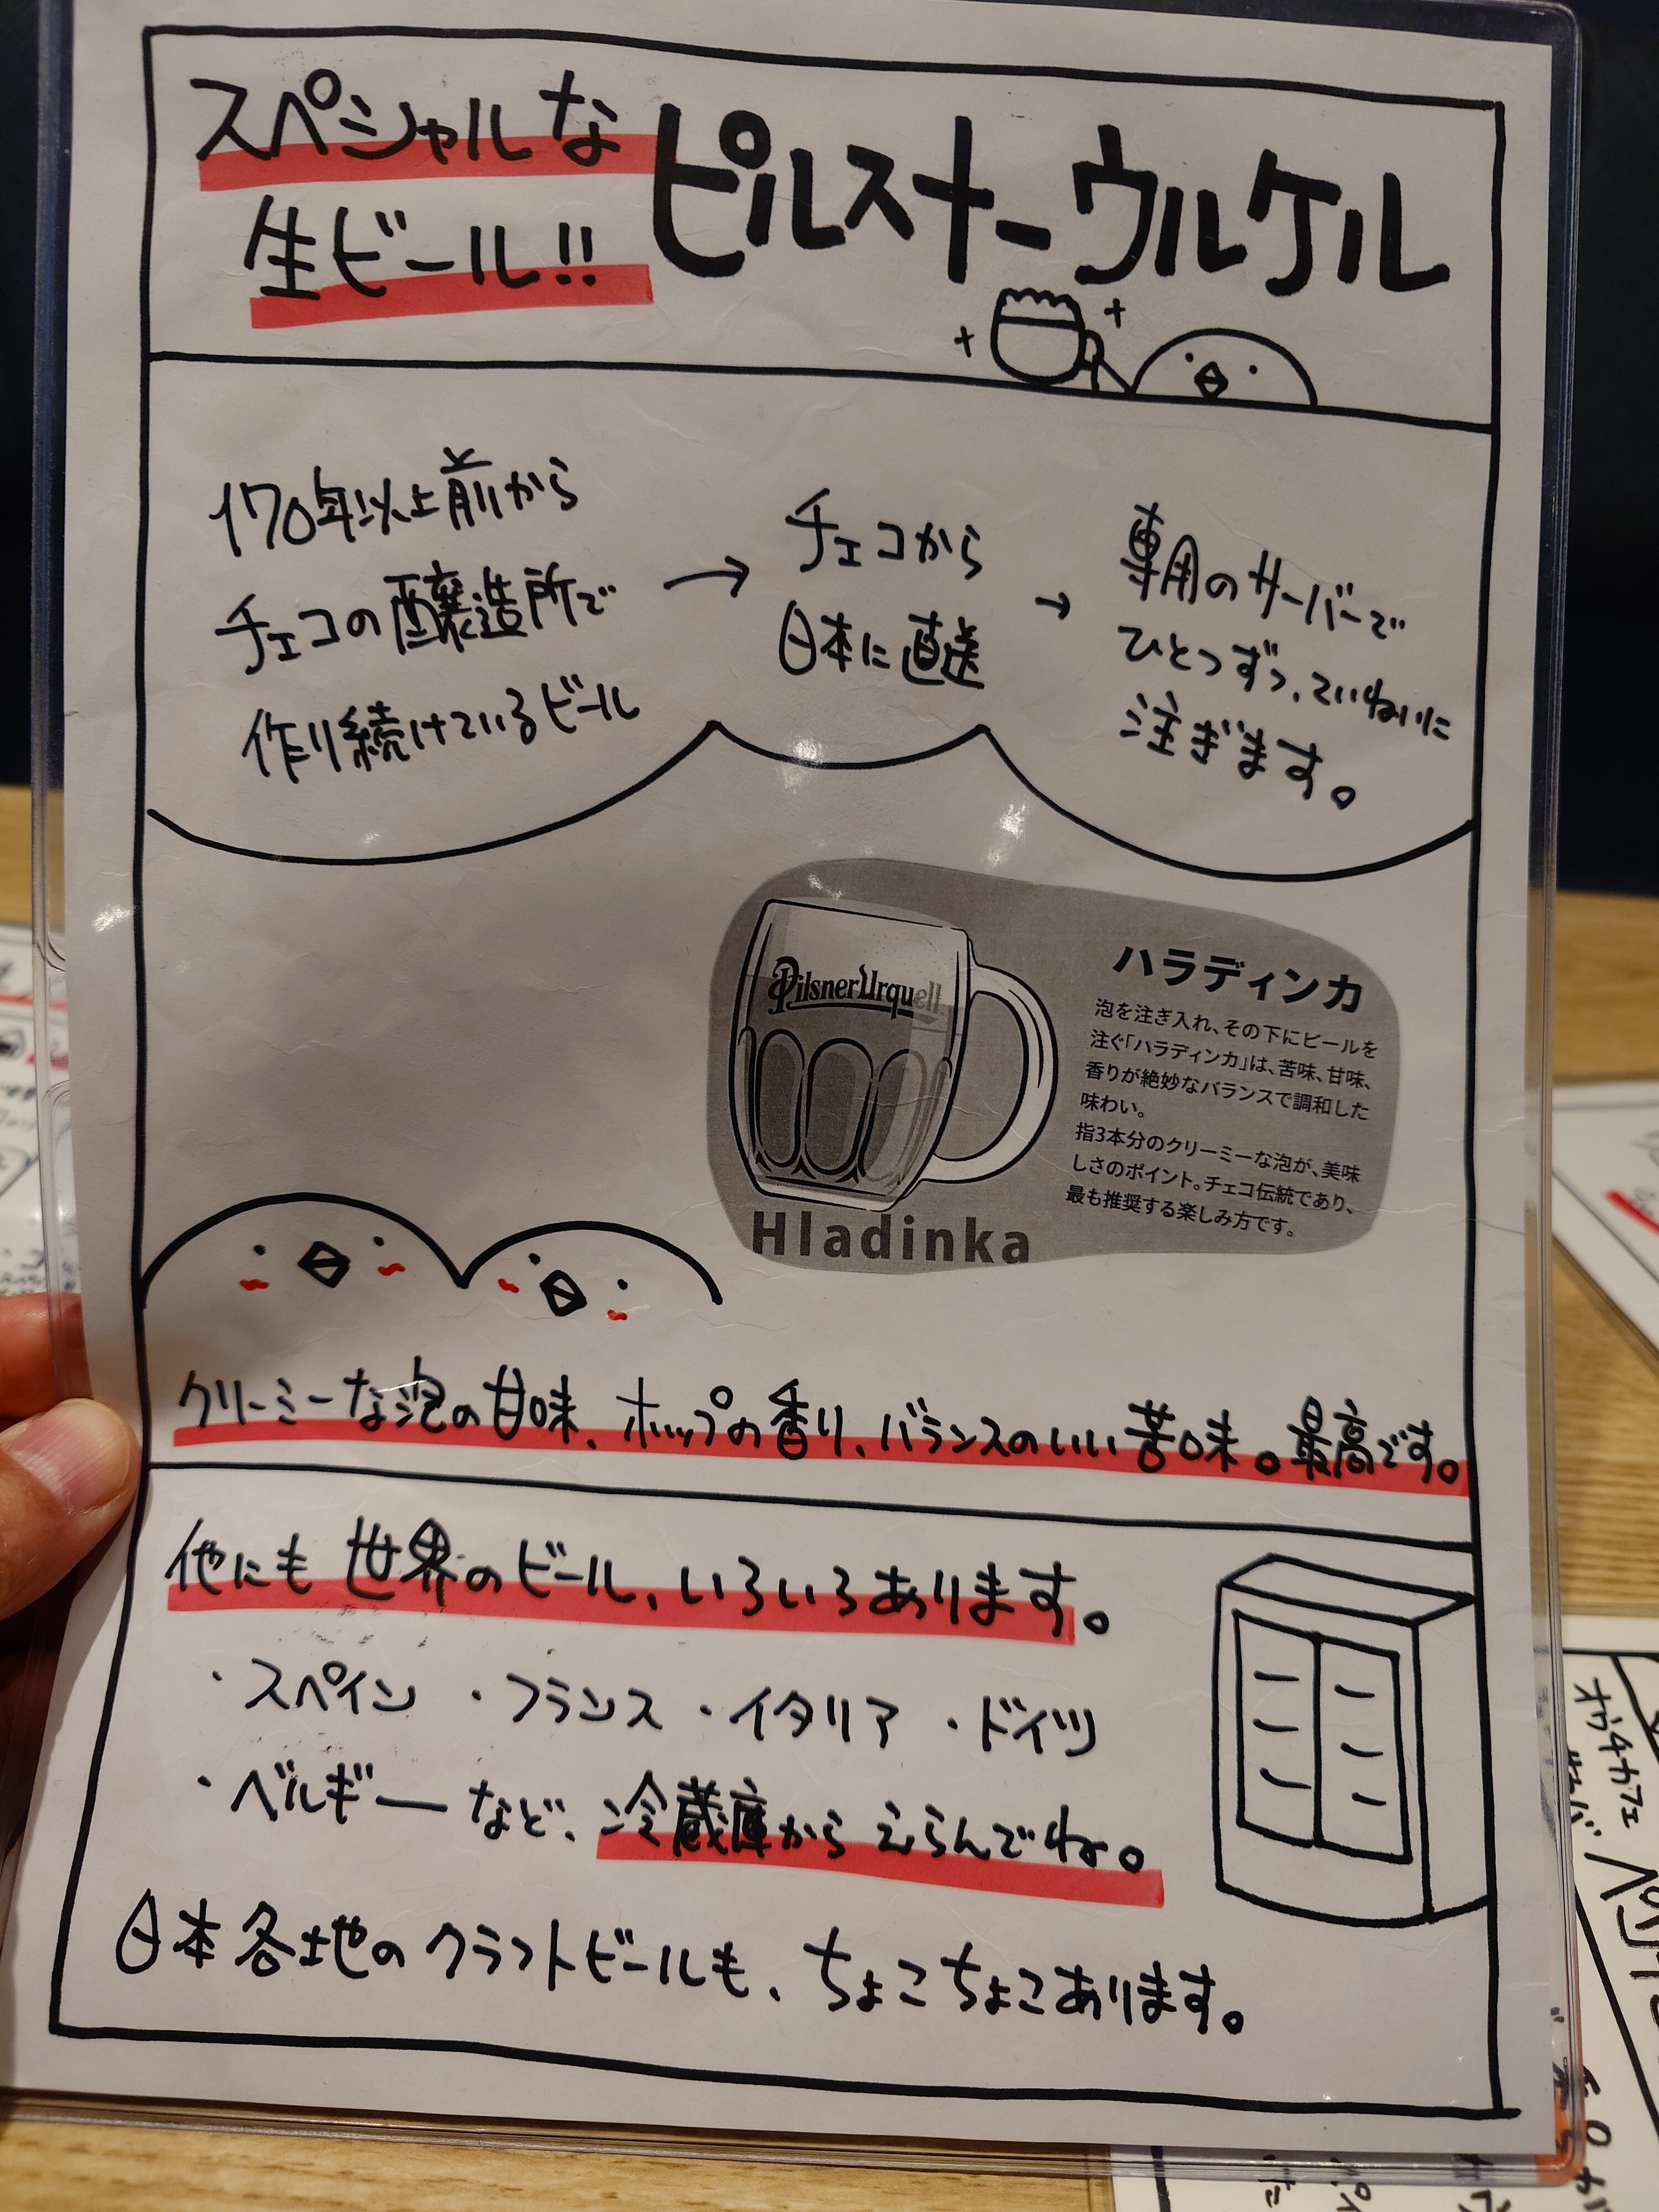 スペシャルな
生ビール!!
ピルスナーウルケル
170年以上前から
チェコの醸造所で
作り続けているビール
→
チェコから
日本に直送
→
専用のサーバーで
ひとつずつ、ていねいに
注ぎます。
PilsnerUrquell
ハラディンカ
泡を注ぎ入れ、その下にビールを
注ぐ「ハラディンカ」は、苦味、甘味、
香りが絶妙なバランスで調和した
味わい。
指3本分のクリーミーな泡が、美味
しさのポイント。チェコ伝統であり、
最も推奨する楽しみ方です。
Hladinka
クリーミーな泡の甘味、ホップの香り、バランスのいい苦味。最高です。
他にも世界のビール、いろいろあります。
・スペイン ・フランス ・イタリア ・ドイツ
・ベルギー など、冷蔵庫からえらんでね。
日本各地のクラフトビールも、ちょこちょこあります。
オウチカフェ